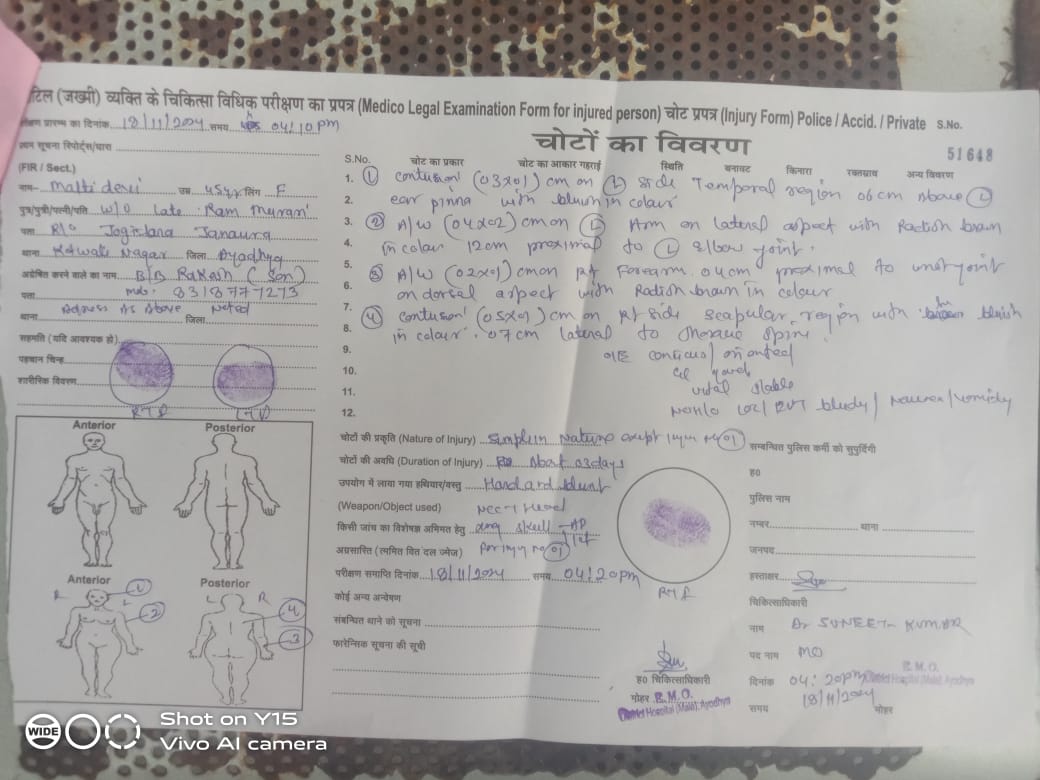 टिल (जख्मी) व्यक्ति के चिकित्सा विधिक परीक्षण का प्रपत्र (Medico Legal Examination Form for injured person) चोट प्रपत्र (Injury Form) Police / Accid. / Private S.No.
51648
प्रारम्भ का दिनांक 18/11/2024 समय 04:10 pm
सूचना रिपोर्ट्स/धारा
(FIR / Sect.)
नाम- devi उम्र 45yr लिंग F
पुत्र/पुत्री/पत्नी/पति W/O Late Ram
पता R/o Janaura
थाना Nagar जिला Ayodhya
अग्रेषित करने वाले का नाम B/B Rakesh (Son)
पता mob: 8318777273
थाना Address As Above Noted जिला
सहमति (यदि आवश्यक हो)
पहचान चिन्ह
शारीरिक विवरण
RTI LTI
Anterior Posterior
Anterior Posterior
R L L R
1 2 4 3
चोटों का विवरण
S.No. चोट का प्रकार चोट का आकार गहराई स्थिति बनावट किनारा रक्तस्राव अन्य विवरण
1. ① contusion (03x01) cm on Ⓛ side Temporal region 06 cm above Ⓛ
2. ear pinna with bluish in colour
3. ② A/W (04x02) cm on Ⓛ Arm on lateral aspect with Radish brown
4. in colour 12cm proximal to Ⓛ elbow joint.
5. ③ A/W (02x01) cm on Rt Forearm 04cm proximal to joint
6. on dorsal aspect with Radish brown in colour
7. ④ contusion (05x01) cm on Rt side scapular region with bluish
8. in colour. 07cm lateral to spine.
9. oriented
10.
11. vital stable
12.
चोटों की प्रकृति (Nature of Injury) Simple in Nature except injury No ①
चोटों की अवधि (Duration of Injury) About 03 days
उपयोग में लाया गया हथियार/वस्तु Hard and blunt
(Weapon/Object used)
किसी जांच का विशेषज्ञ अभिमत हेतु skull - AP
Lat
For injury no ①
परीक्षण समाप्ति दिनांक 18/11/2024 समय 04:20pm
कोई अन्य अन्वेषण
संबन्धित थाने को सूचना
फारेन्सिक सूचना की सूची
RTI
ह0 चिकित्साधिकारी
मोहर E.M.O.
District Hospital (Male) Ayodhya
सम्बन्धित पुलिस कर्मी को सुपुर्दगी
ह0
पुलिस नाम
नम्बर थाना
जनपद
हस्ताक्षर
चिकित्साधिकारी
नाम Dr SUNEET KUMAR
पद नाम MO
E.M.O.
दिनांक 04:20pm District Hospital (Male) Ayodhya
समय 18/11/2024 मोहर
WIDE Shot on Y15
Vivo AI camera